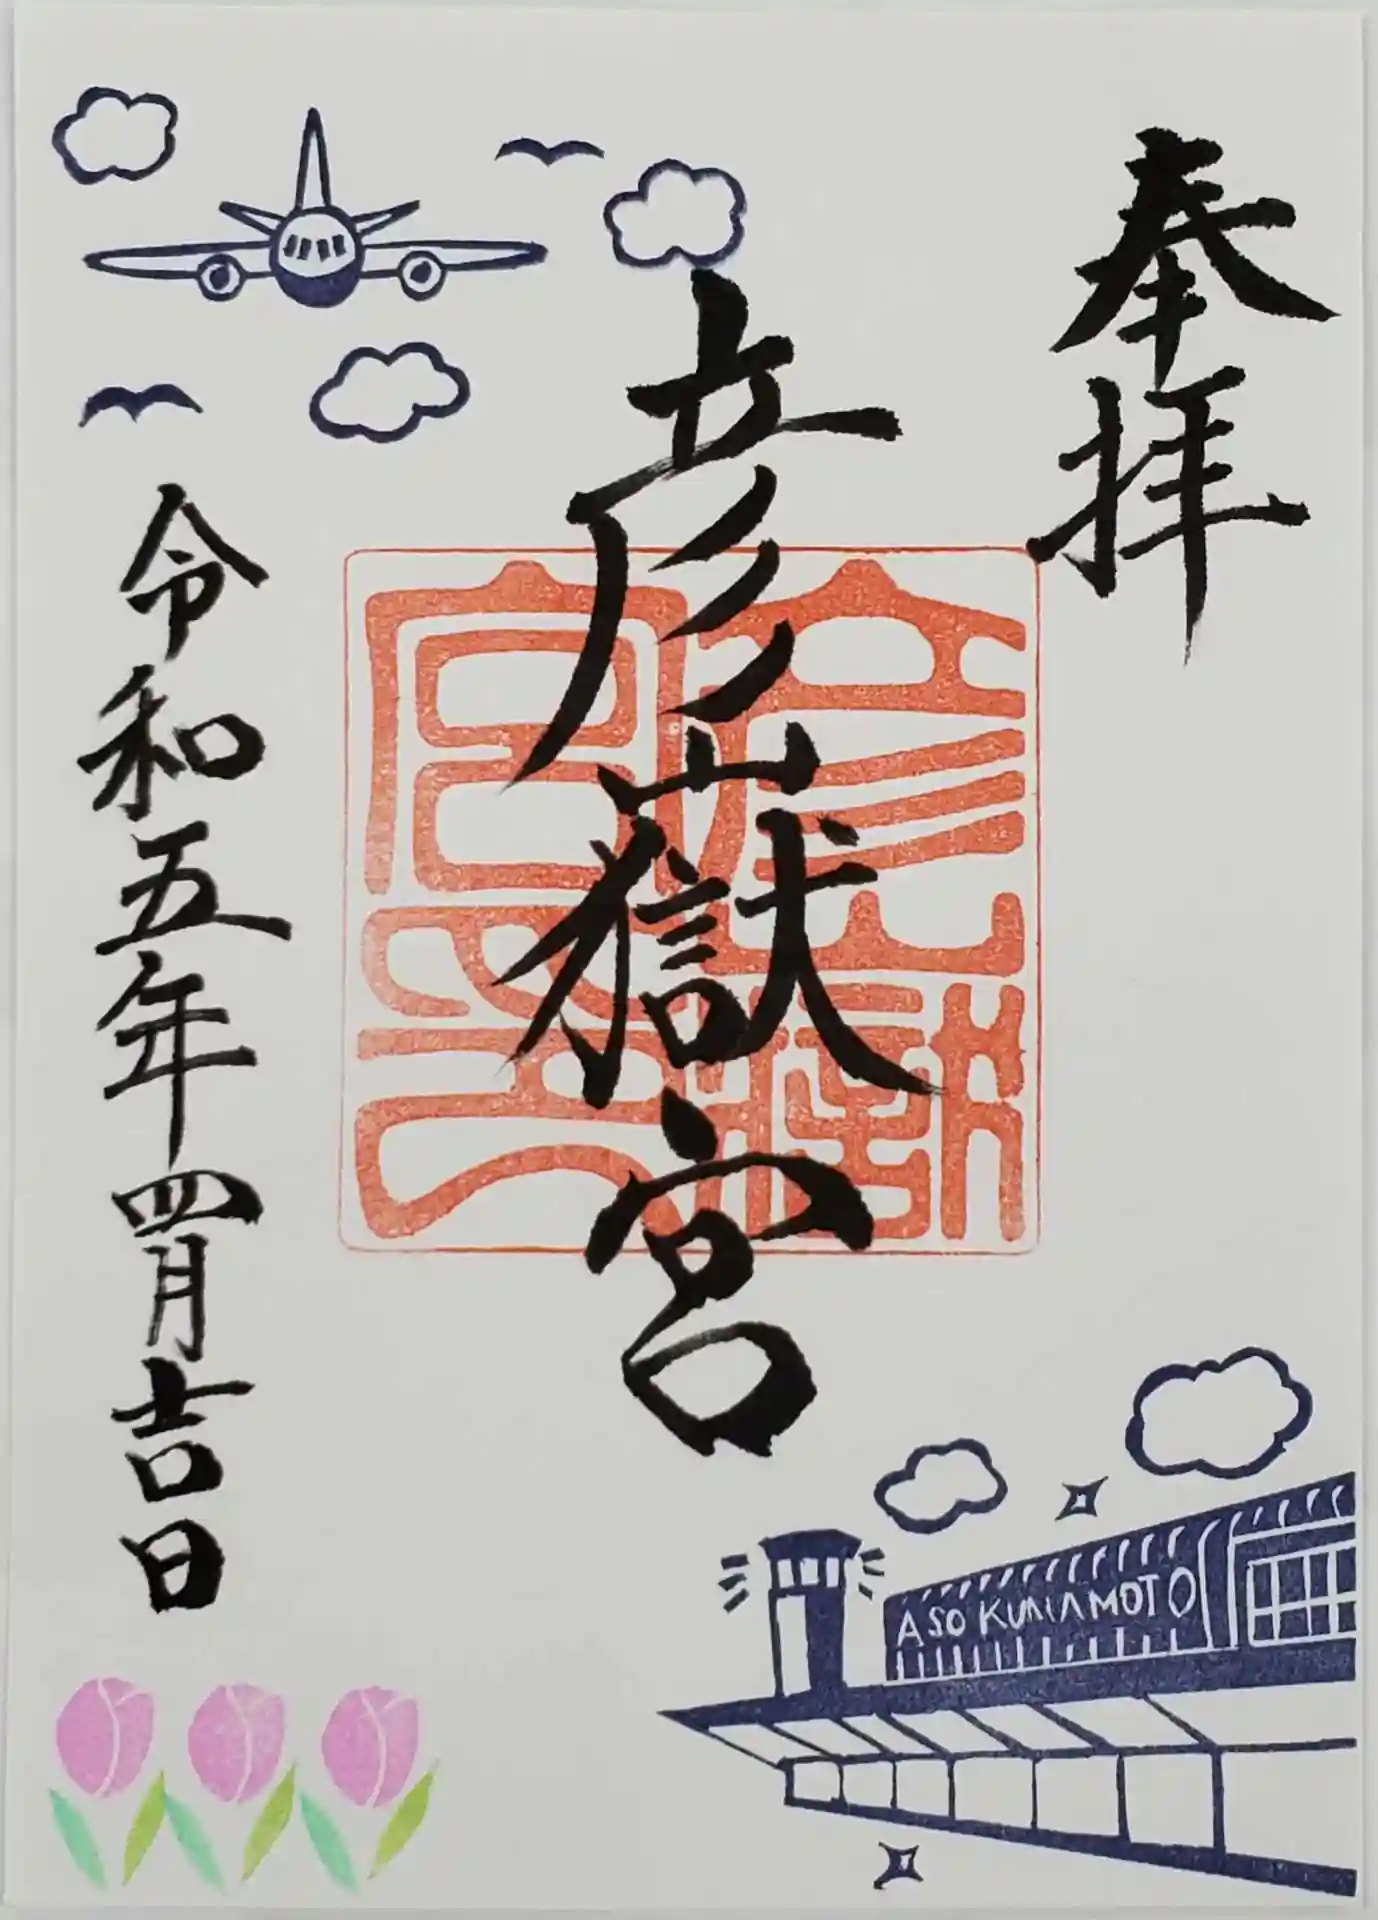 奉拝
彦嶽宮
彦嶽宮之印
令和五年四月吉日
ASO KUMAMOTO